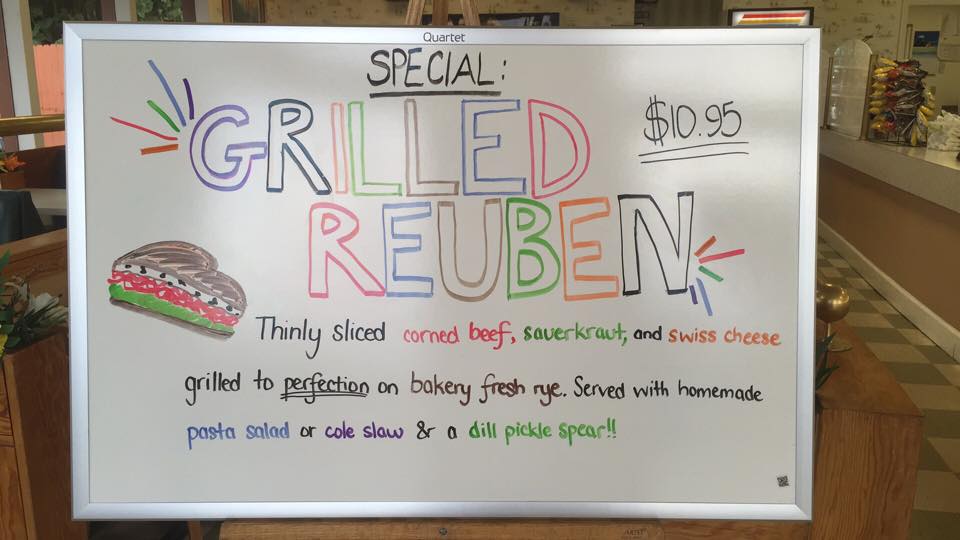 Quartet
SPECIAL:
GRILLED
$10.95
REUBEN
Thinly sliced corned beef, sauerkraut, and swiss cheese
grilled to perfection on bakery fresh rye. Served with homemade
pasta salad or cole slaw & a dill pickle spear!!